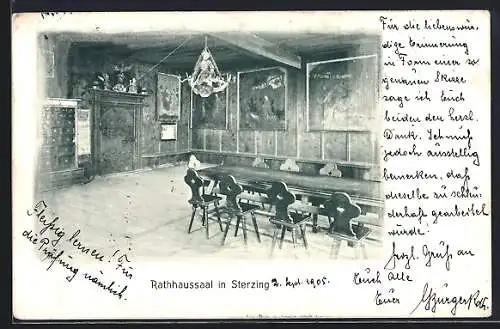 Für die liebenswür-
dige Erinnerung
in Form einer so
genauen Skizze
sage ich Euch
beiden den herzl.
Dank. Ich muß
jedoch ausstellig
bemerken, daß
dieselbe zu schleu-
derhaft gearbeitet
wurde!
herzl. Gruß an
Euch Alle
Euer
Fleißig lernen! Für
die Prüfung nämlich.
Rathhaussaal in Sterzing 2. Sept. 1905.